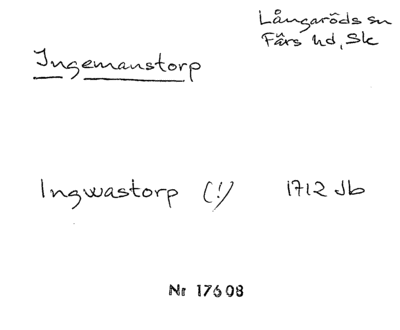 Långaröds sn
Färs hd, Sk
Ingemanstorp
Ingwastorp (!) 1712 Jb
Nr 17608